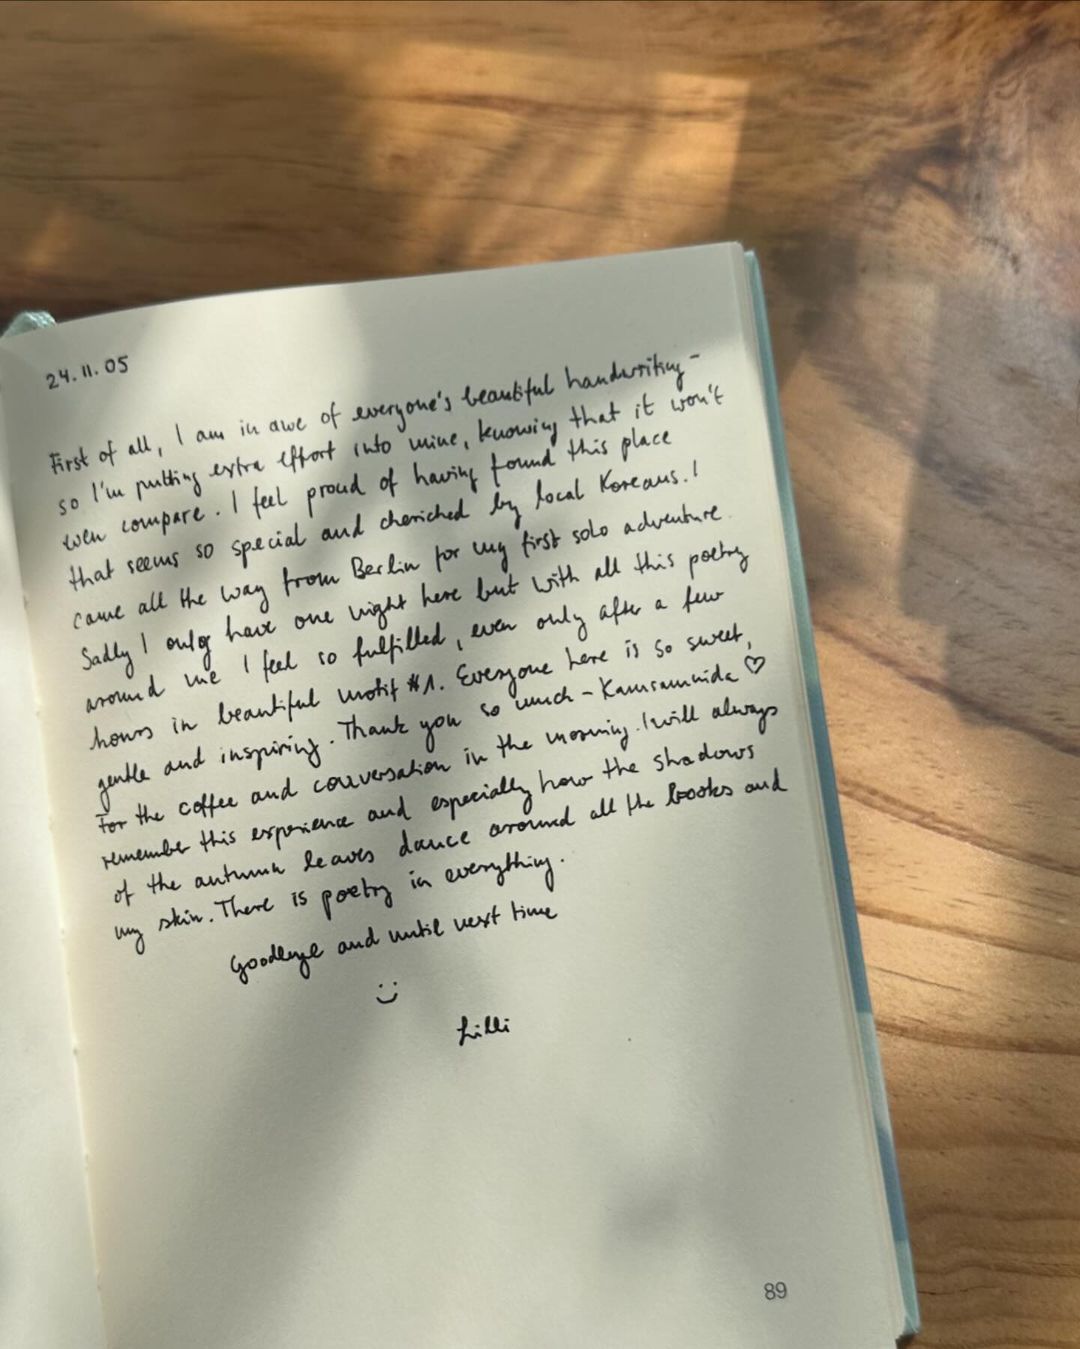 24.11.05
First of all, I am in awe of everyone's beautiful handwriting –
so I'm putting extra effort into mine, knowing that it won't
even compare. I feel proud of having found this place
that seems so special and cheriched by local Koreans. I
came all the way from Berlin for my first solo adventure.
Sadly I only have one night here but with all this poetry
around me I feel so fulfilled, even only after a few
hours in beautiful motif #1. Everyone here is so sweet,
gentle and inspiring. Thank you so much – Kamsamnida ♡
For the coffee and conversation in the morning. I will always
remember this experience and especially how the shadows
of the autumn leaves dance around all the books and
my skin. There is poetry in everything.
Goodbye and until next time
:)
Lilli
89